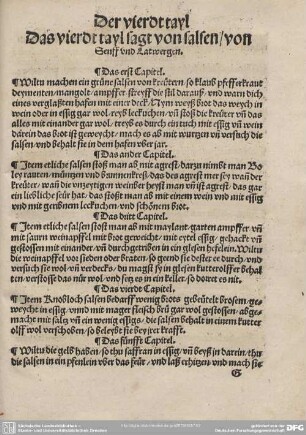 Der vierdt tayl
Das vierdt tayl sagt von salsen/von
Senff vnd Latwergen.
¶ Das erst Capitel.
¶ Wiltu machen ein grüne salsen von kreütern/so klaub pfefferkraut
deymenten/mangolt/ampffer/streyff die stil darauß/vnd warn dich
eines verglaßten hafen mit einer deck. Nym weyß brot das weych in
wein oder in essig gar wol/reyb leckuchen/vñ stoß die kreüter vñ das
alles mit einander gar wol/treyb es durch ein tuch mit essig vñ wein
darein das brot ist geweycht/mach es ab mit wurtzen vñ versuch die
salsen/vnd behalt sie in dem hafen vber jar.
¶ Das ander Capitel.
¶ Item etliche salsen stoß man ab mit agrest/darzu nimbt man Bo
ley rauten/müntzen vnd brunnenkreß/das des agrest mer sey wañ der
kreüter/wañ die vnzeytigen weinber heyst man vñ ist agrest/das gar
ein liebliche seür hat/das stoßt man ab mit einem wein vnd mit essig
vnd mit geribnem leckuchen/vnd schönem brot.
¶ Das dritt Capitel.
¶ Item etliche salsen stost man ab mit maylant/garten ampffer/vñ
mit saurn weinapffel mit brot geweicht/mit eytel essig/gehackt vñ
gestossen mit einander/vñ durchgetriben in ein glesen befelein. Wiltu
die weinapffel vor sieden oder braten/so gend sie dester ee durch/vnd
versuch sie wol/vñ verdecks/du magst sy in glesen kutterolffer behal
ten/verstoß das nür wol/vnd setz es in ein keller/so dorret es nit.
¶ Das vierdt Capitel.
¶ Item Knobloch salsen bedarff wenig brots/gebeütelt brosem/ge
weycht in essig/vnnd mit mager fleisch brü gar wol gestossen/abge
macht mit saltz vñ ein wenig essigs/die salsen behalt in einem kutter
olff wol verschoben/so beleybt sie bey jrer krafft.
¶ Das fünfft Capitel.
¶ Wiltu die gelb haben/so thu saffran in essig/vñ beyß in darein/thu
die salsen in ein pfenlein vber das feür/vnd laß erhitzen/vnd mach sie
G